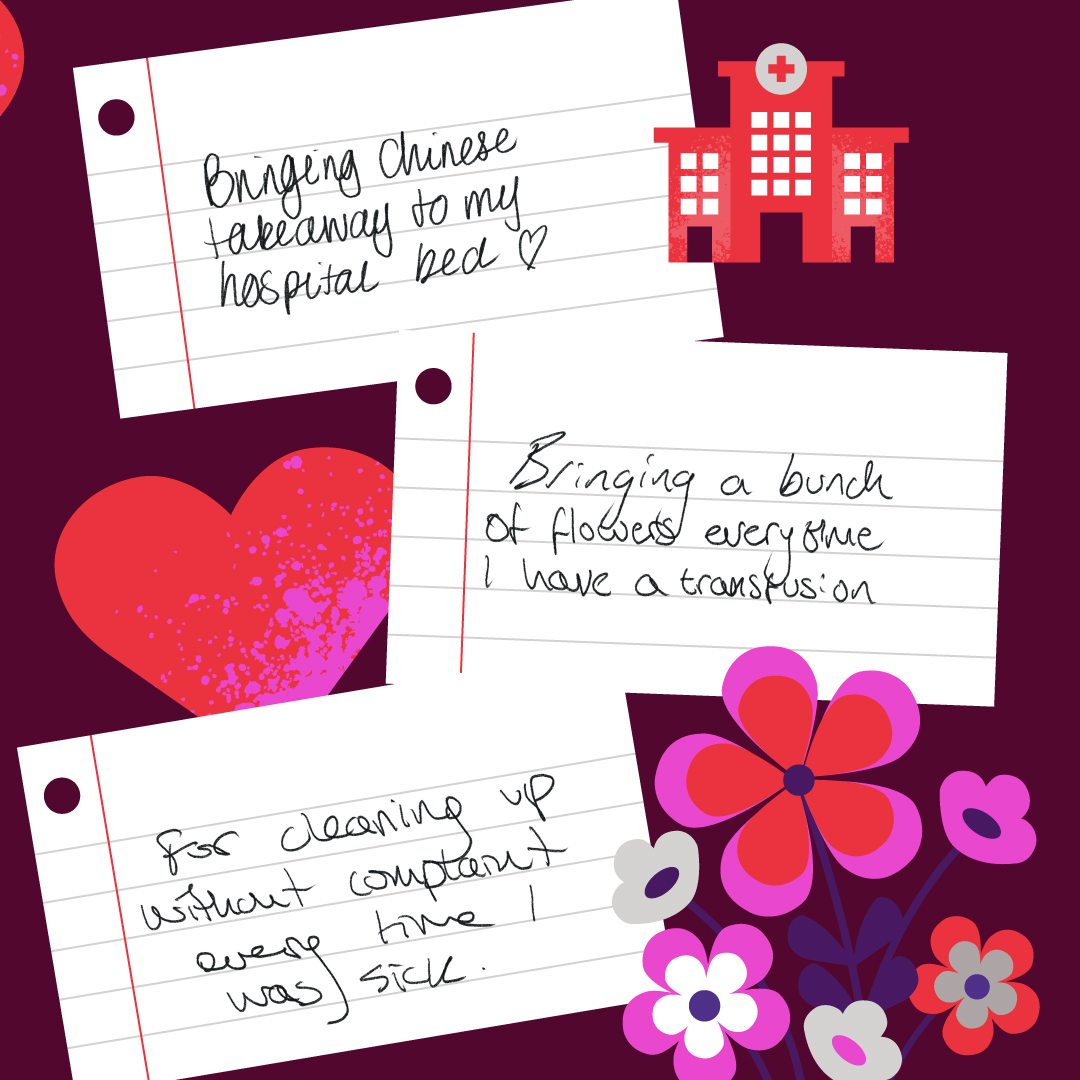 Bringing Chinese
takeaway to my
hospital bed ♡
Bringing a bunch
of flowers everytime
I have a transfusion
For cleaning up
without complaint
every time I
was sick.